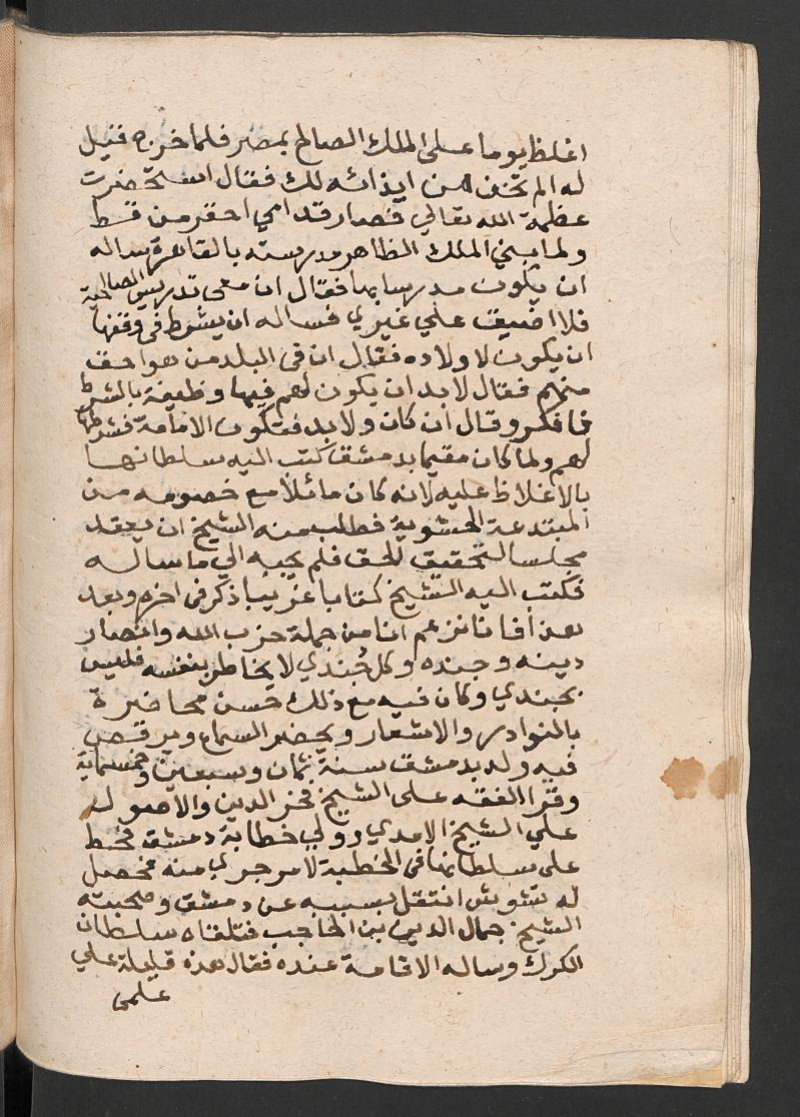 اغلظ يوما على الملك الصالح بمصر فلما خرج قيل
له الم تخف من ايذائه لك فقال استحضرت
عظمة الله تعالي فصار قدامي احقر من قط
ولما بني الملك الظاهر مدرسته بالقاهرة ساله
ان يكون مدرسا بها فقال ان معى تدريس الصالحية
فلا اضيق علي غيري فساله ان يشرط فى وقفها
ان يكون لاولاده فقال ان فى البلد من هو احق
منهم فقال لا بد ان يكون لهم فيها وظيفة بالشرط
فافكر وقال ان كان ولا بد فتكون الامامة فشرطها
لهم ولما كان مقيما بدمشق كتب اليه سلطانها
بالاغلاظ عليه لانه كان مائلا مع خصومه من
المبتدعة الحشوية فطلب منه الشيخ ان يعقد
مجلسا لتحقيق الحق فلم يجبه الي ما ساله
فكتب اليه الشيخ كتابا غريبا ذكر فى اخره وبعد
هذا فانا نزعم انا من جملة حزب الله وانصار
دينه وجنده وكل جُندي لا يخاطر بنفسه فليس
بجندي وكان فيه مع ذلك حسن محاضرة
بالنوادر والاشعار ويحضر السماع ويرقص
فيه ولد بدمشق سنة ثمان وسبعين وخمسماية
وقرا الفقه على الشيخ فخر الدين والاصول
علي الشيخ الامدي وولي خطابة دمشق فحط
على سلطانها فى الخطبة لامر جرى منه فحصل
له تشويش انتقل بسببه عن دمشق وصحبته
الشيخ جمال الدين بن الحاجب فتلقاه سلطان
الكرك وساله الاقامة عنده فقال هذه قليلة علي
علمى